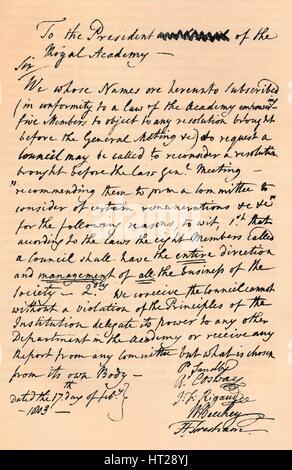 To the President of the
Royal Academy —
Sir
We whose Names are hereunto subscribed
(in conformity to a law of the Academy empowerg
five Members to object to any resolution brought
before the General Meeting &c) do request a
Council may be called to reconsider a resolution
brought before the last Genl Meeting —
"recommending them to form a Committee to
consider of certain remunerations &c &c"
for the following reasons to wit, 1st that
acording to the laws the eight Members called
a Council shall have the entire direction
and management of all the business of the
Society — 2dly We conceive the Council cannot
without a violation of the Principles of the
Institution delegate its power to any other
Department in the Academy or receive any
Report from any Committee but what is chosen
from its own Body —
P. Sandby
R. Cosway
J. F. Rigaud
dated the 17th day of
1803
W Beechey
alamy
Image ID: HT282Y
www.alamy.com